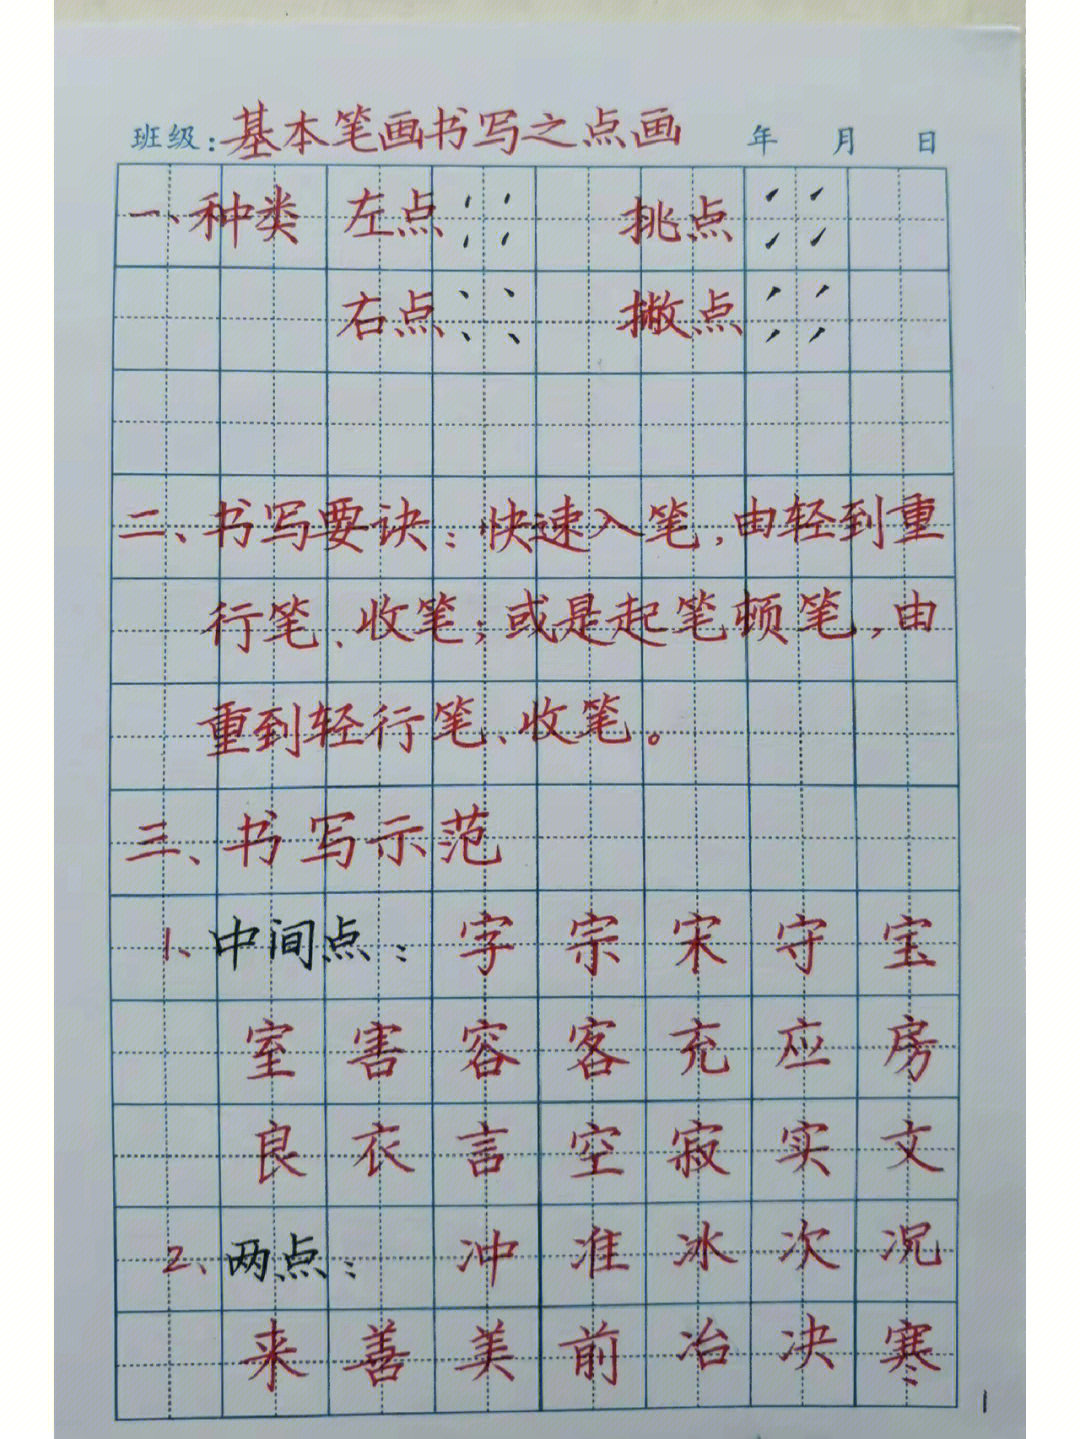 班级:基本笔画书写之点画 年 月 日
一、种类 左点 挑点
右点 撇点
二、书写要诀:快速入笔,由轻到重
行笔、收笔;或是起笔顿笔,由
重到轻行笔、收笔。
三、书写示范
1、中间点: 字 宗 宋 守 宝
室 害 容 客 充 应 房
良 衣 言 空 寂 实 文
2、两点: 冲 准 冰 次 况
来 善 美 前 冶 决 寒
1